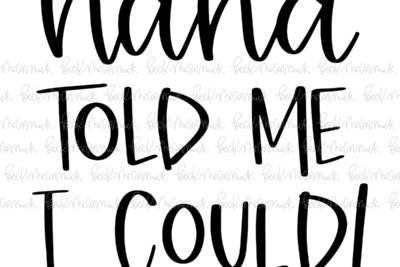 nana
TOLD ME
I COULD!